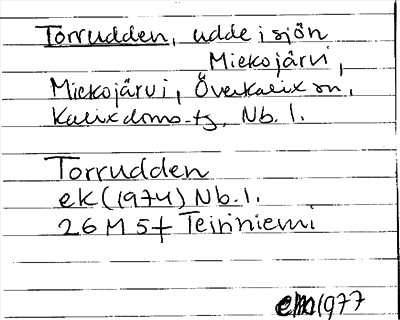 Torrudden, udde i sjön
Miekojärvi,
Miekojärvi, Överkalix sn,
Kalix doms. tg, Nb. l.
Torrudden
ek (1974) Nb. l.
26 M 5f Teiriniemi
1977